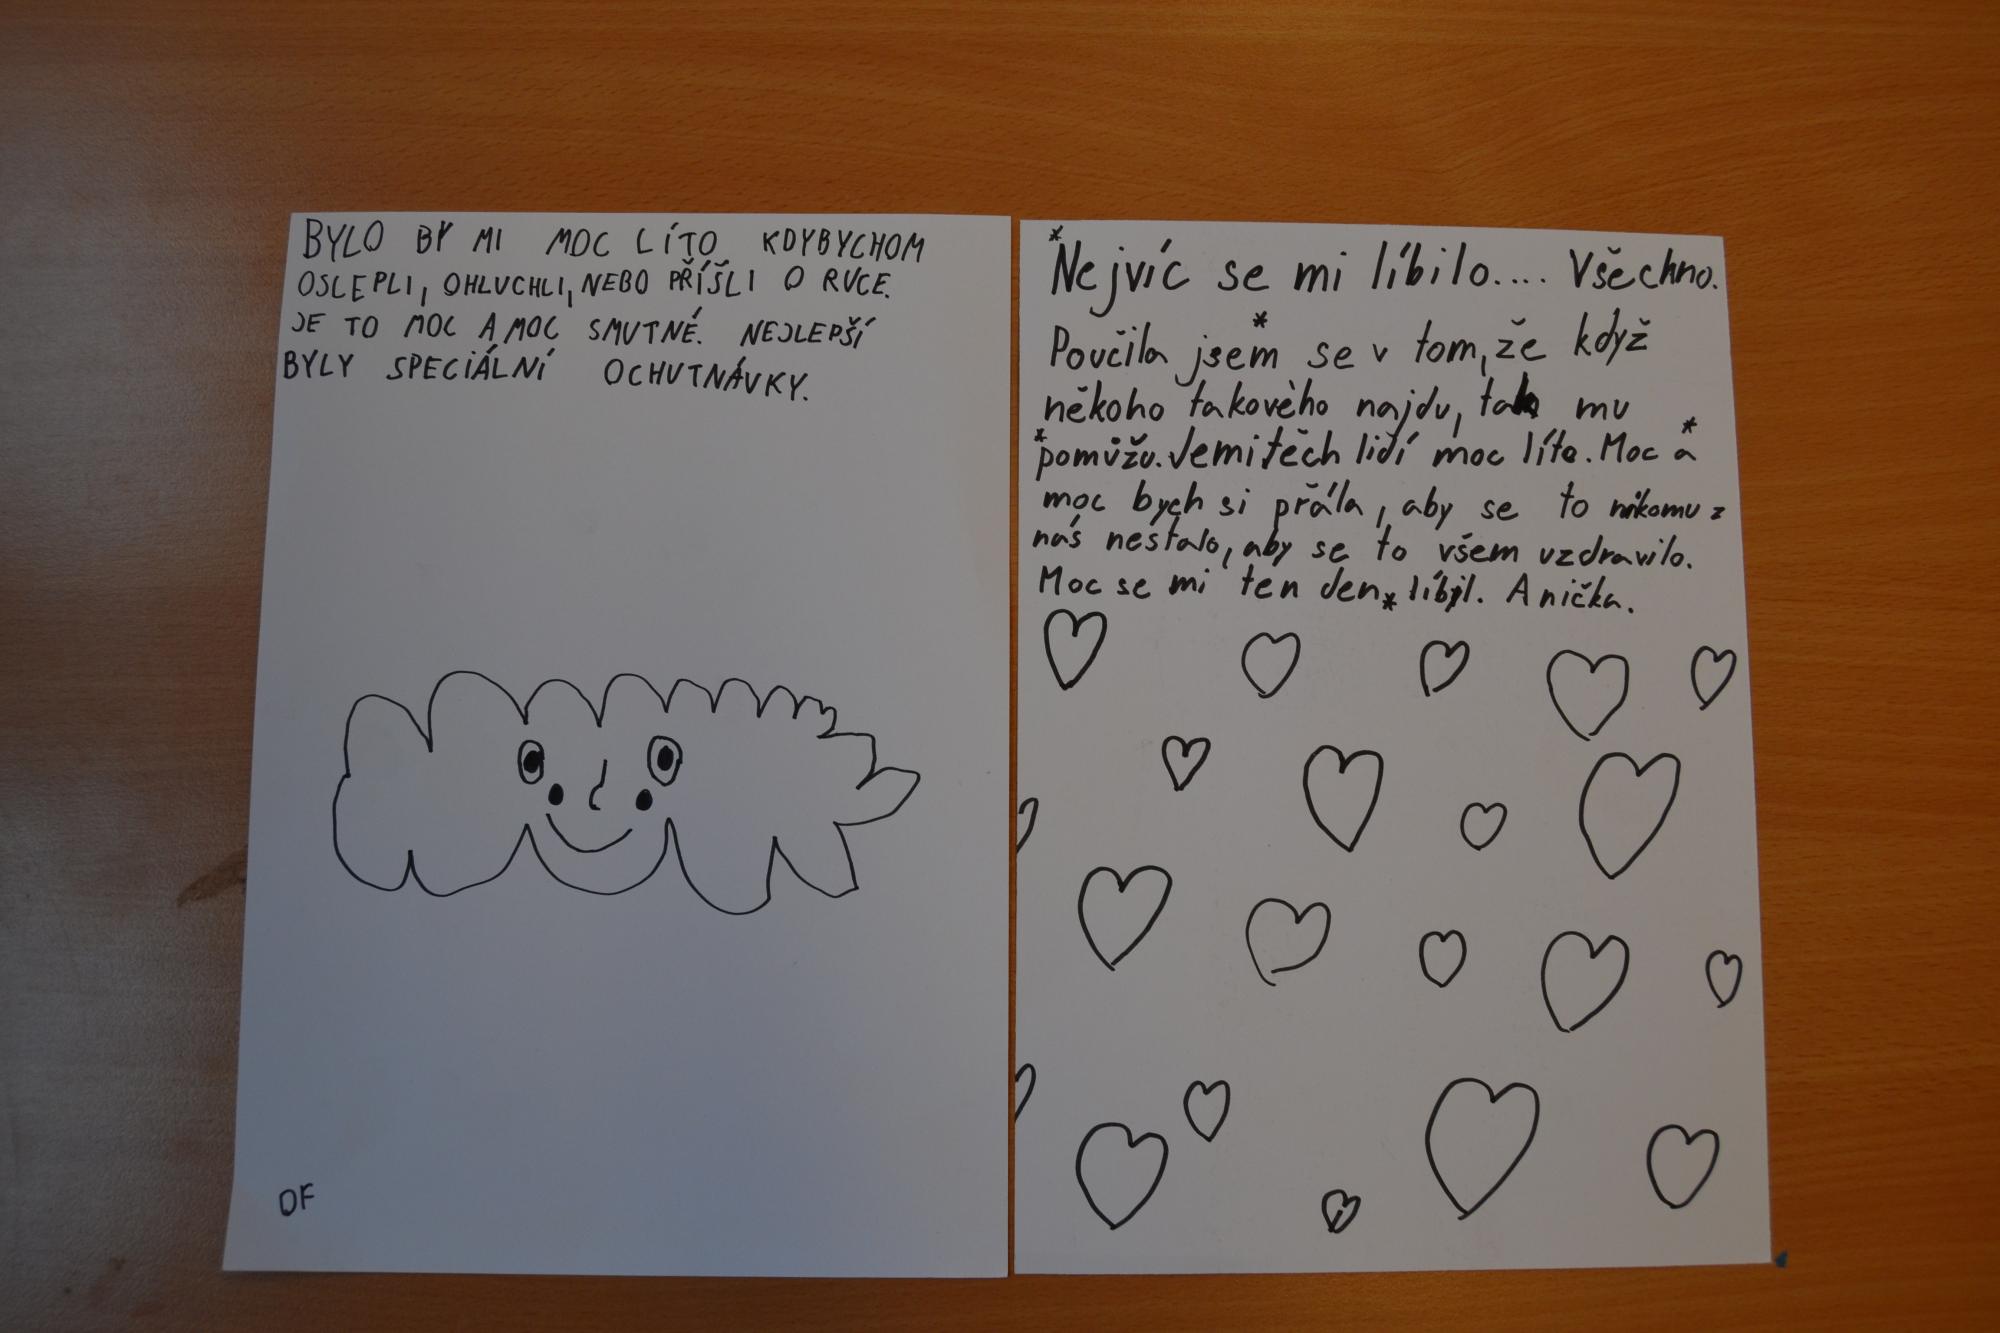 BYLO BY MI MOC LÍTO KDYBYCHOM
OSLEPLI, OHLUCHLI, NEBO PŘÍŠLI O RUCE.
JE TO MOC A MOC SMUTNÉ. NEJLEPŠÍ
BYLY SPECIÁLNÍ OCHUTNÁVKY.
DF
Nejvíc se mi líbilo.... Všechno.
Poučila jsem se v tom, že když
někoho takového najdu, tak mu
pomůžu. Je mi těch lidí moc líto. Moc a
moc bych si přála, aby se to nikomu z
nás nestalo, aby se to všem uzdravilo.
Moc se mi ten den líbil. Anička.